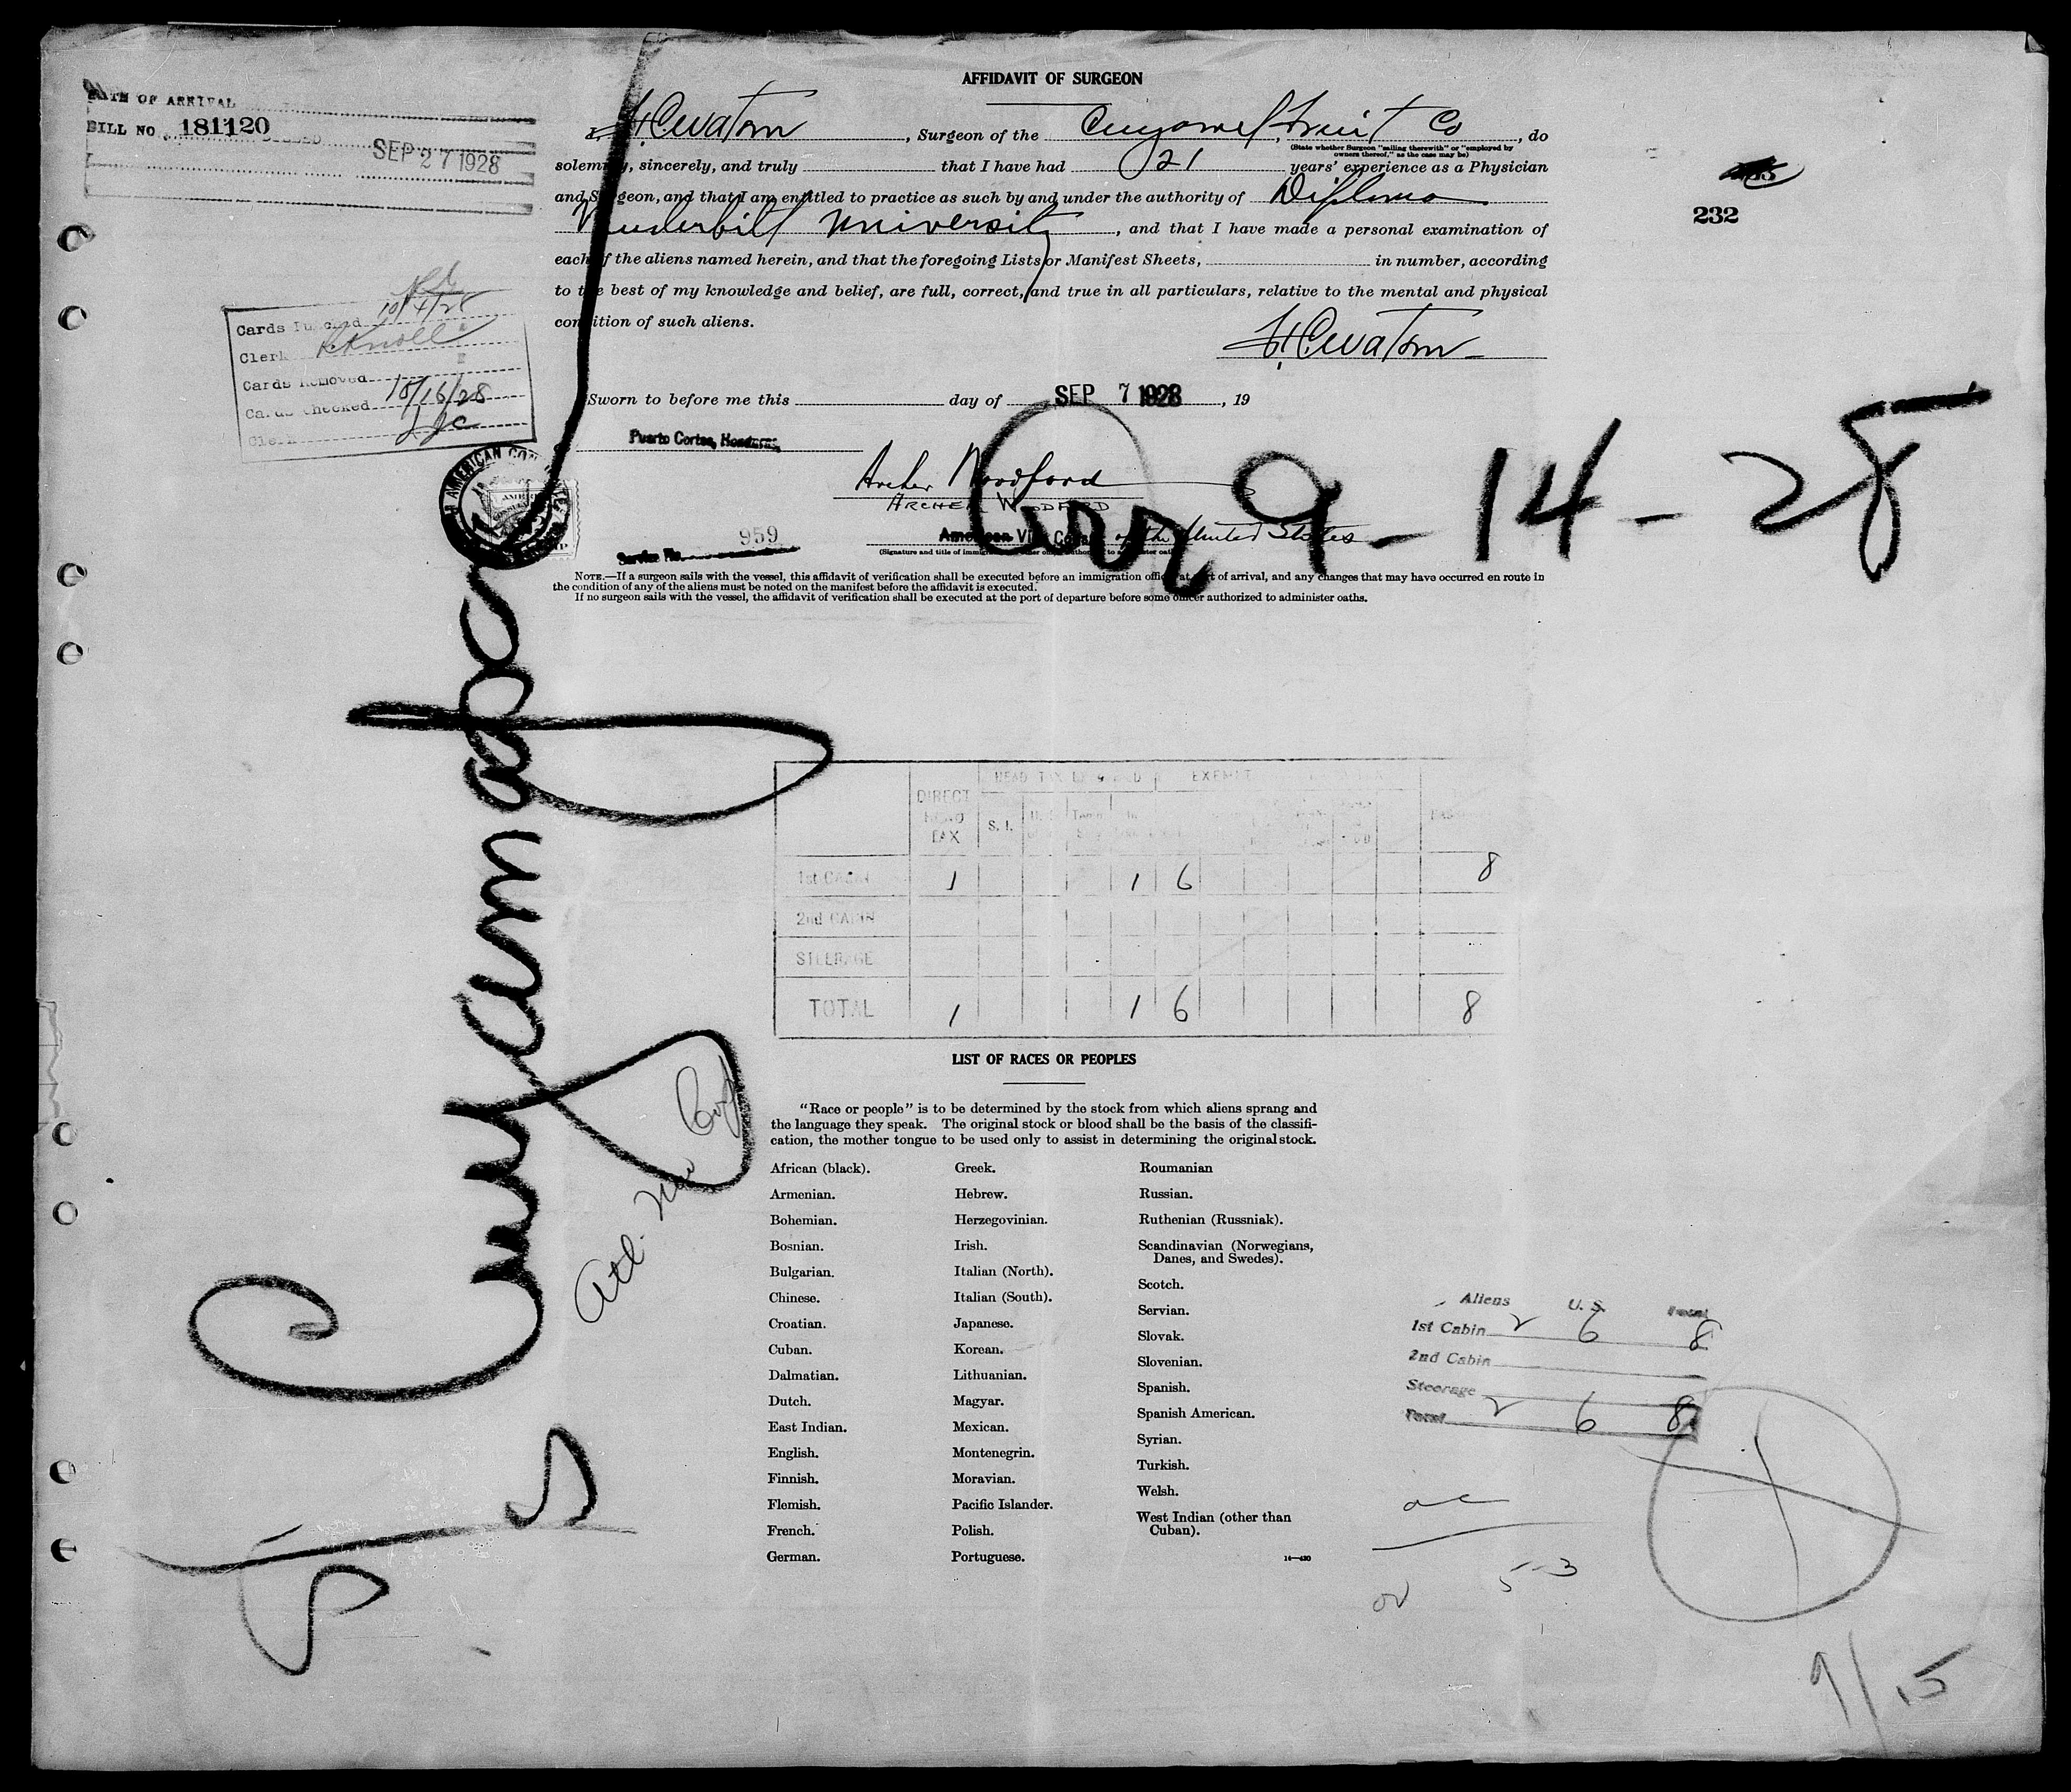 AFFIDAVIT OF SURGEON
DATE OF ARRIVAL
BILL NO. 181120
SEP 27 1928
I, H C Watson, Surgeon of the Cuyamel Fruit Co, do
(State whether Surgeon "sailing therewith" or "employed by
owners thereof," as the case may be)
solemnly, sincerely, and truly that I have had 21 years' experience as a Physician
and Surgeon, and that I am entitled to practice as such by and under the authority of Diploma
Vanderbilt University, and that I have made a personal examination of
each of the aliens named herein, and that the foregoing Lists or Manifest Sheets, in number, according
to the best of my knowledge and belief, are full, correct, and true in all particulars, relative to the mental and physical
condition of such aliens.
H C Watson
232
Cards Punched 10/4/28
Clerk
Cards Removed
Cards Checked 10/16/28
Clerk
Sworn to before me this day of SEP 7 1928, 19
Puerto Cortes, Honduras
Archer Woodford
ARCHER WOODFORD
American Vice Consul of the United States
Service No. 959
Arr 9-14-28
NOTE.—If a surgeon sails with the vessel, this affidavit of verification shall be executed before an immigration officer at port of arrival, and any changes that may have occurred en route in
the condition of any of the aliens must be noted on the manifest before the affidavit is executed.
If no surgeon sails with the vessel, the affidavit of verification shall be executed at the port of departure before some officer authorized to administer oaths.
SS Cuyamapa
DIRECT HEAD TAX
S. I.
EXEMPT
1st CABIN 1 1 6 8
2nd CABIN
STEERAGE
TOTAL 1 1 6 8
LIST OF RACES OR PEOPLES
"Race or people" is to be determined by the stock from which aliens sprang and
the language they speak. The original stock or blood shall be the basis of the classifi-
cation, the mother tongue to be used only to assist in determining the original stock.
African (black).
Armenian.
Bohemian.
Bosnian.
Bulgarian.
Chinese.
Croatian.
Cuban.
Dalmatian.
Dutch.
East Indian.
English.
Finnish.
Flemish.
French.
German.
Greek.
Hebrew.
Herzegovinian.
Irish.
Italian (North).
Italian (South).
Japanese.
Korean.
Lithuanian.
Magyar.
Mexican.
Montenegrin.
Moravian.
Pacific Islander.
Polish.
Portuguese.
Roumanian
Russian.
Ruthenian (Russniak).
Scandinavian (Norwegians,
Danes, and Swedes).
Scotch.
Servian.
Slovak.
Slovenian.
Spanish.
Spanish American.
Syrian.
Turkish.
Welsh.
West Indian (other than
Cuban).
Aliens U. S. Total
1st Cabin 2 6 8
2nd Cabin
Steerage
Total 2 6 8
53
9/15